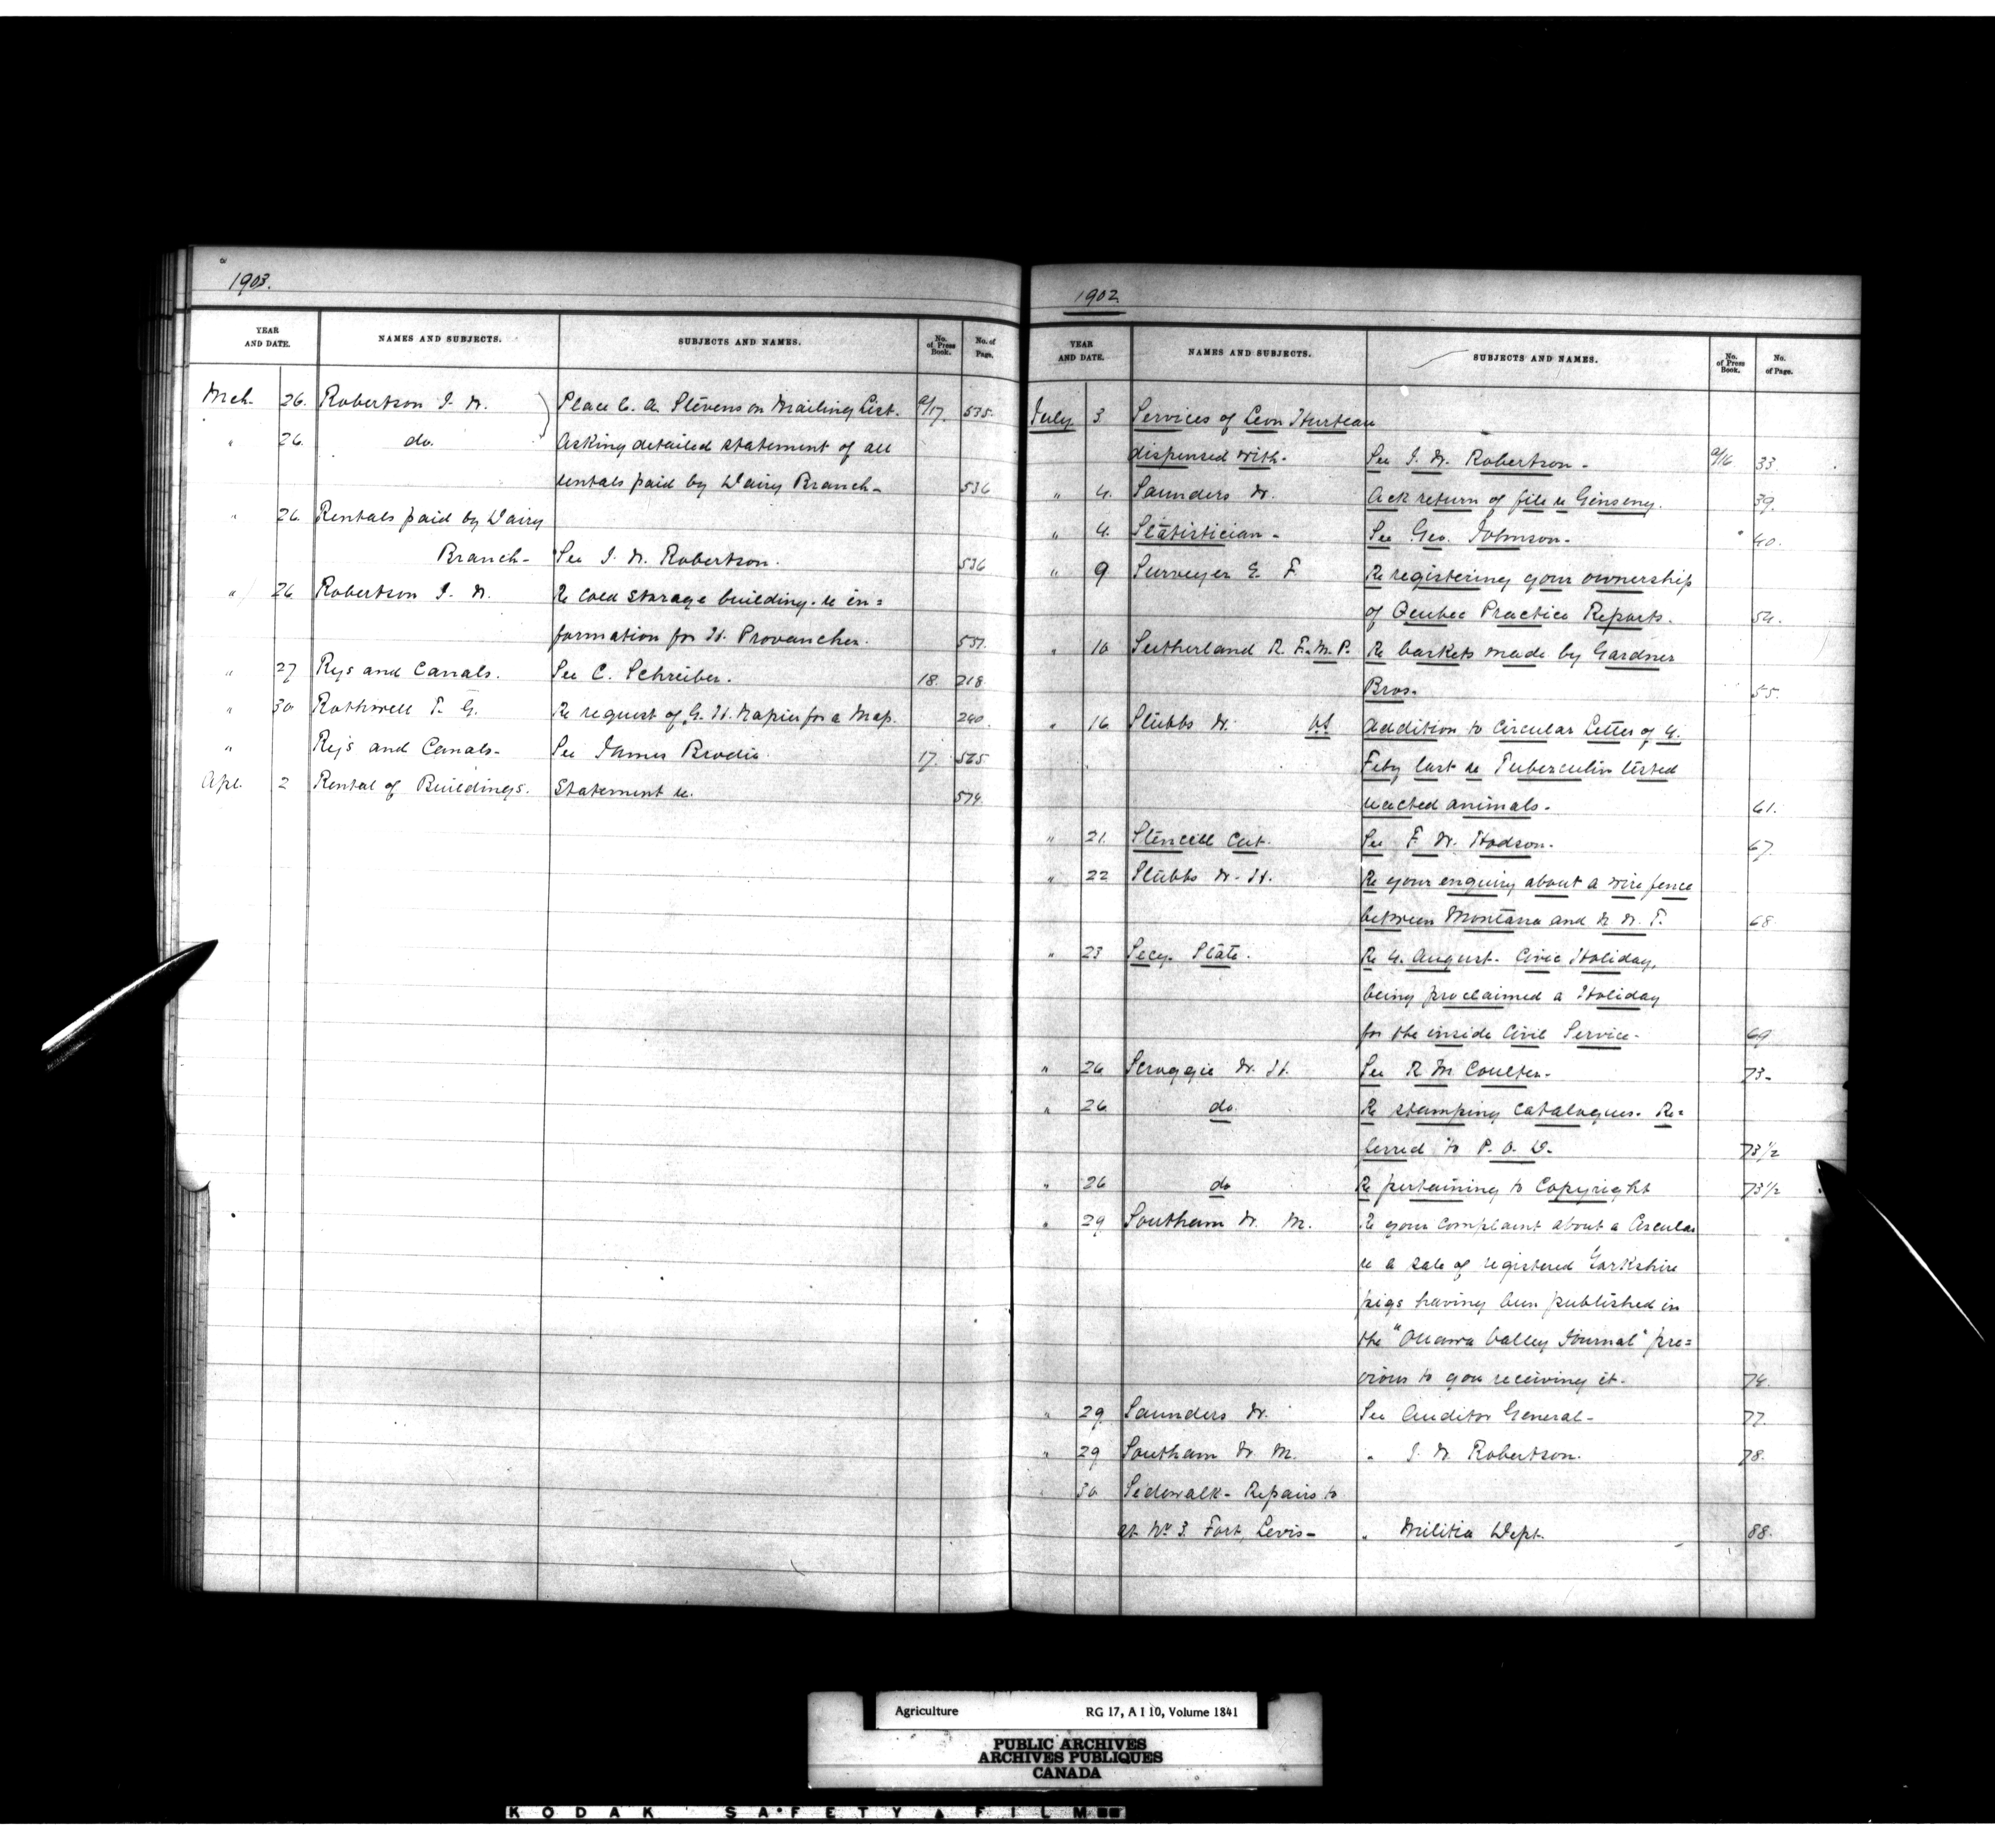 1903.
YEAR AND DATE. NAMES AND SUBJECTS. SUBJECTS AND NAMES. No. of Press Book. No. of Page.
Mch. 26. Robertson J. W. Place C. A. Stevens on Mailing List. a/17. 535.
" 26. do. Asking detailed statement of all
rentals paid by Dairy Branch- 536
" 26. Rentals paid by Dairy
Branch- See J. W. Robertson. 536
" 26. Robertson J. W. Re cold storage building. re in=
formation for H. Provancher. 537.
" 27 Rys and Canals. See C. Schreiber. 18. 218.
" 30 Rothwell T. G. Re request of G. H. Napier for a Map. 240.
" Rys and Canals- See James Brodie. 17. 565
Apl. 2 Rental of Buildings. Statement re. 574.
1902.
YEAR AND DATE. NAMES AND SUBJECTS. SUBJECTS AND NAMES. No. of Press Book. No. of Page.
July 3 Services of Leon Hurteau
dispensed with. See J. W. Robertson- a/16 33.
" 4. Saunders W. Ack return of file re Ginseng. 39.
" 4. Statistician- See Geo. Johnson- " 40.
" 9 Surveyer E. F. Re registering your ownership
of Quebec Practice Reports. 54.
" 10 Sutherland R. F. M.P. Re baskets made by Gardner
Bros. 55.
" 16 Stubbs W. Addition to Circular Letter of 4.
Feby last re Tuberculin tested
reacted animals- 61.
" 21. Stencell Cut. See F. W. Hodson. 67.
" 22 Stubbs W. H. Re your enquiry about a wire fence
between Montana and N. W. T. 68
" 23 Secy. State. Re 4. August- Civic Holiday,
being proclaimed a Holiday
for the inside Civil Service- 69
" 26 Scroggie W. H. See R M Coulter- 73-
" 26 do. Re stamping Catalogues. Re=
ferred to P. O. D. 73 1/2
" 26 do Re pertaining to Copyright 73 1/2
" 29. Southam W. M. Re your complaint about a Circular
re a sale of registered Yorkshire
pigs having been published in
the "Ottawa Valley Journal" pre=
vious to you receiving it- 74.
" 29. Saunders W. See Auditor General- 77.
" 29 Southam W. M. " J. W. Robertson. 78.
" 30 Sidewalk- Repairs to
at No 3. Fort, Levis- " Militia Dept. 88.
Agriculture RG 17, A I 10, Volume 1841
PUBLIC ARCHIVES
ARCHIVES PUBLIQUES
CANADA
KODAK SAFETY FILM